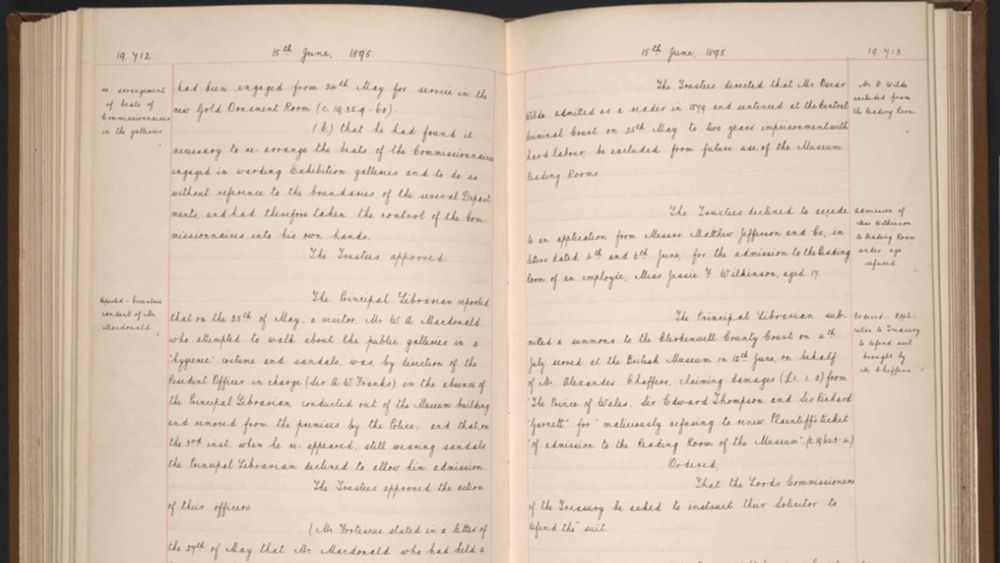 19,712.
15th June, 1895.
re-arrangement
of beats of
Commissionnaires
in the galleries
had been engaged from 24th May for service in the
new Gold Ornament Room (c. 19,3589-60).
(b.) that he had found it
necessary to re-arrange the beats of the Commissionnaires
engaged in warding Exhibition galleries and to do so
without reference to the boundaries of the several Depart-
ments, and had therefore taken the control of the Com-
missionnaires into his own hands.
The Trustees approved.
Reported - Eccentric
conduct of Mr
Macdonald.
The Principal Librarian reported
that on the 25th of May, a visitor, Mr W. A. Macdonald,
who attempted to walk about the public galleries in a
"hygienic" costume and sandals, was, by direction of the
Resident Officer in charge (Sir A. W. Franks), in the absence of
the Principal Librarian, conducted out of the Museum building
and removed from the premises by the Police, and that, on
the 3rd inst. when he re-appeared, still wearing sandals
the Principal Librarian declined to allow him admission.
The Trustees approved the action
of their officers.
(Mr Fortescue stated in a letter of
the 27th of May that Mr Macdonald who had held a
15th June, 1895.
19,713.
The Trustees directed that Mr Oscar
Wilde, admitted as a reader in 1879 and sentenced at the Central
Criminal Court on 25th May to two years imprisonment with
hard labour, be excluded from future use of the Museum
Reading Rooms.
Mr O. Wilde
excluded from
the Reading Room.
The Trustees declined to accede
to an application from Messrs. Matthew Jefferson and Co, in
letters dated 4th and 6th June, for the admission to the Reading
Room of an employee, Miss Jessie F. Wilkinson, aged 17.
Admission of
Miss Wilkinson
to Reading Room
under age
refused.
The Principal Librarian sub-
mitted a summons to the Clerkenwell County Court on 4th
July served at the British Museum on 12th June, on behalf
of Mr. Alexander Chaffers, claiming damages (£1. 1. 0) from
"The Prince of Wales, Sir Edward Thompson, and Sir Richard
"Garnett" for "maliciously refusing to renew Plaintiff's ticket
"of admission to the Reading Room of the Museum"
Ordered,
That the Lords Commissioners
of the Treasury be asked to instruct their Solicitor to
defend the suit.
Ordered - Appli-
cation to Treasury
to defend suit
brought by
Mr Chaffers